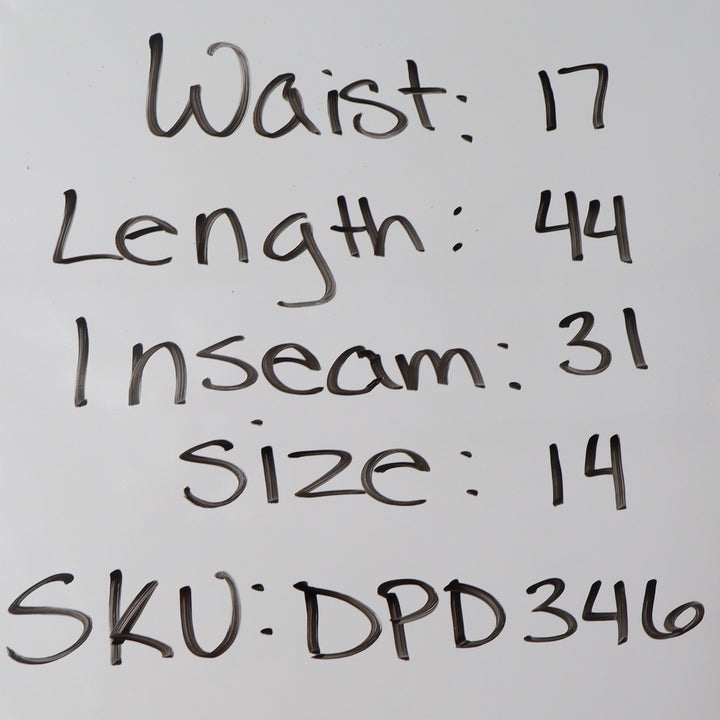 Waist: 17
Length: 44
Inseam: 31
Size: 14
SKU: DPD346